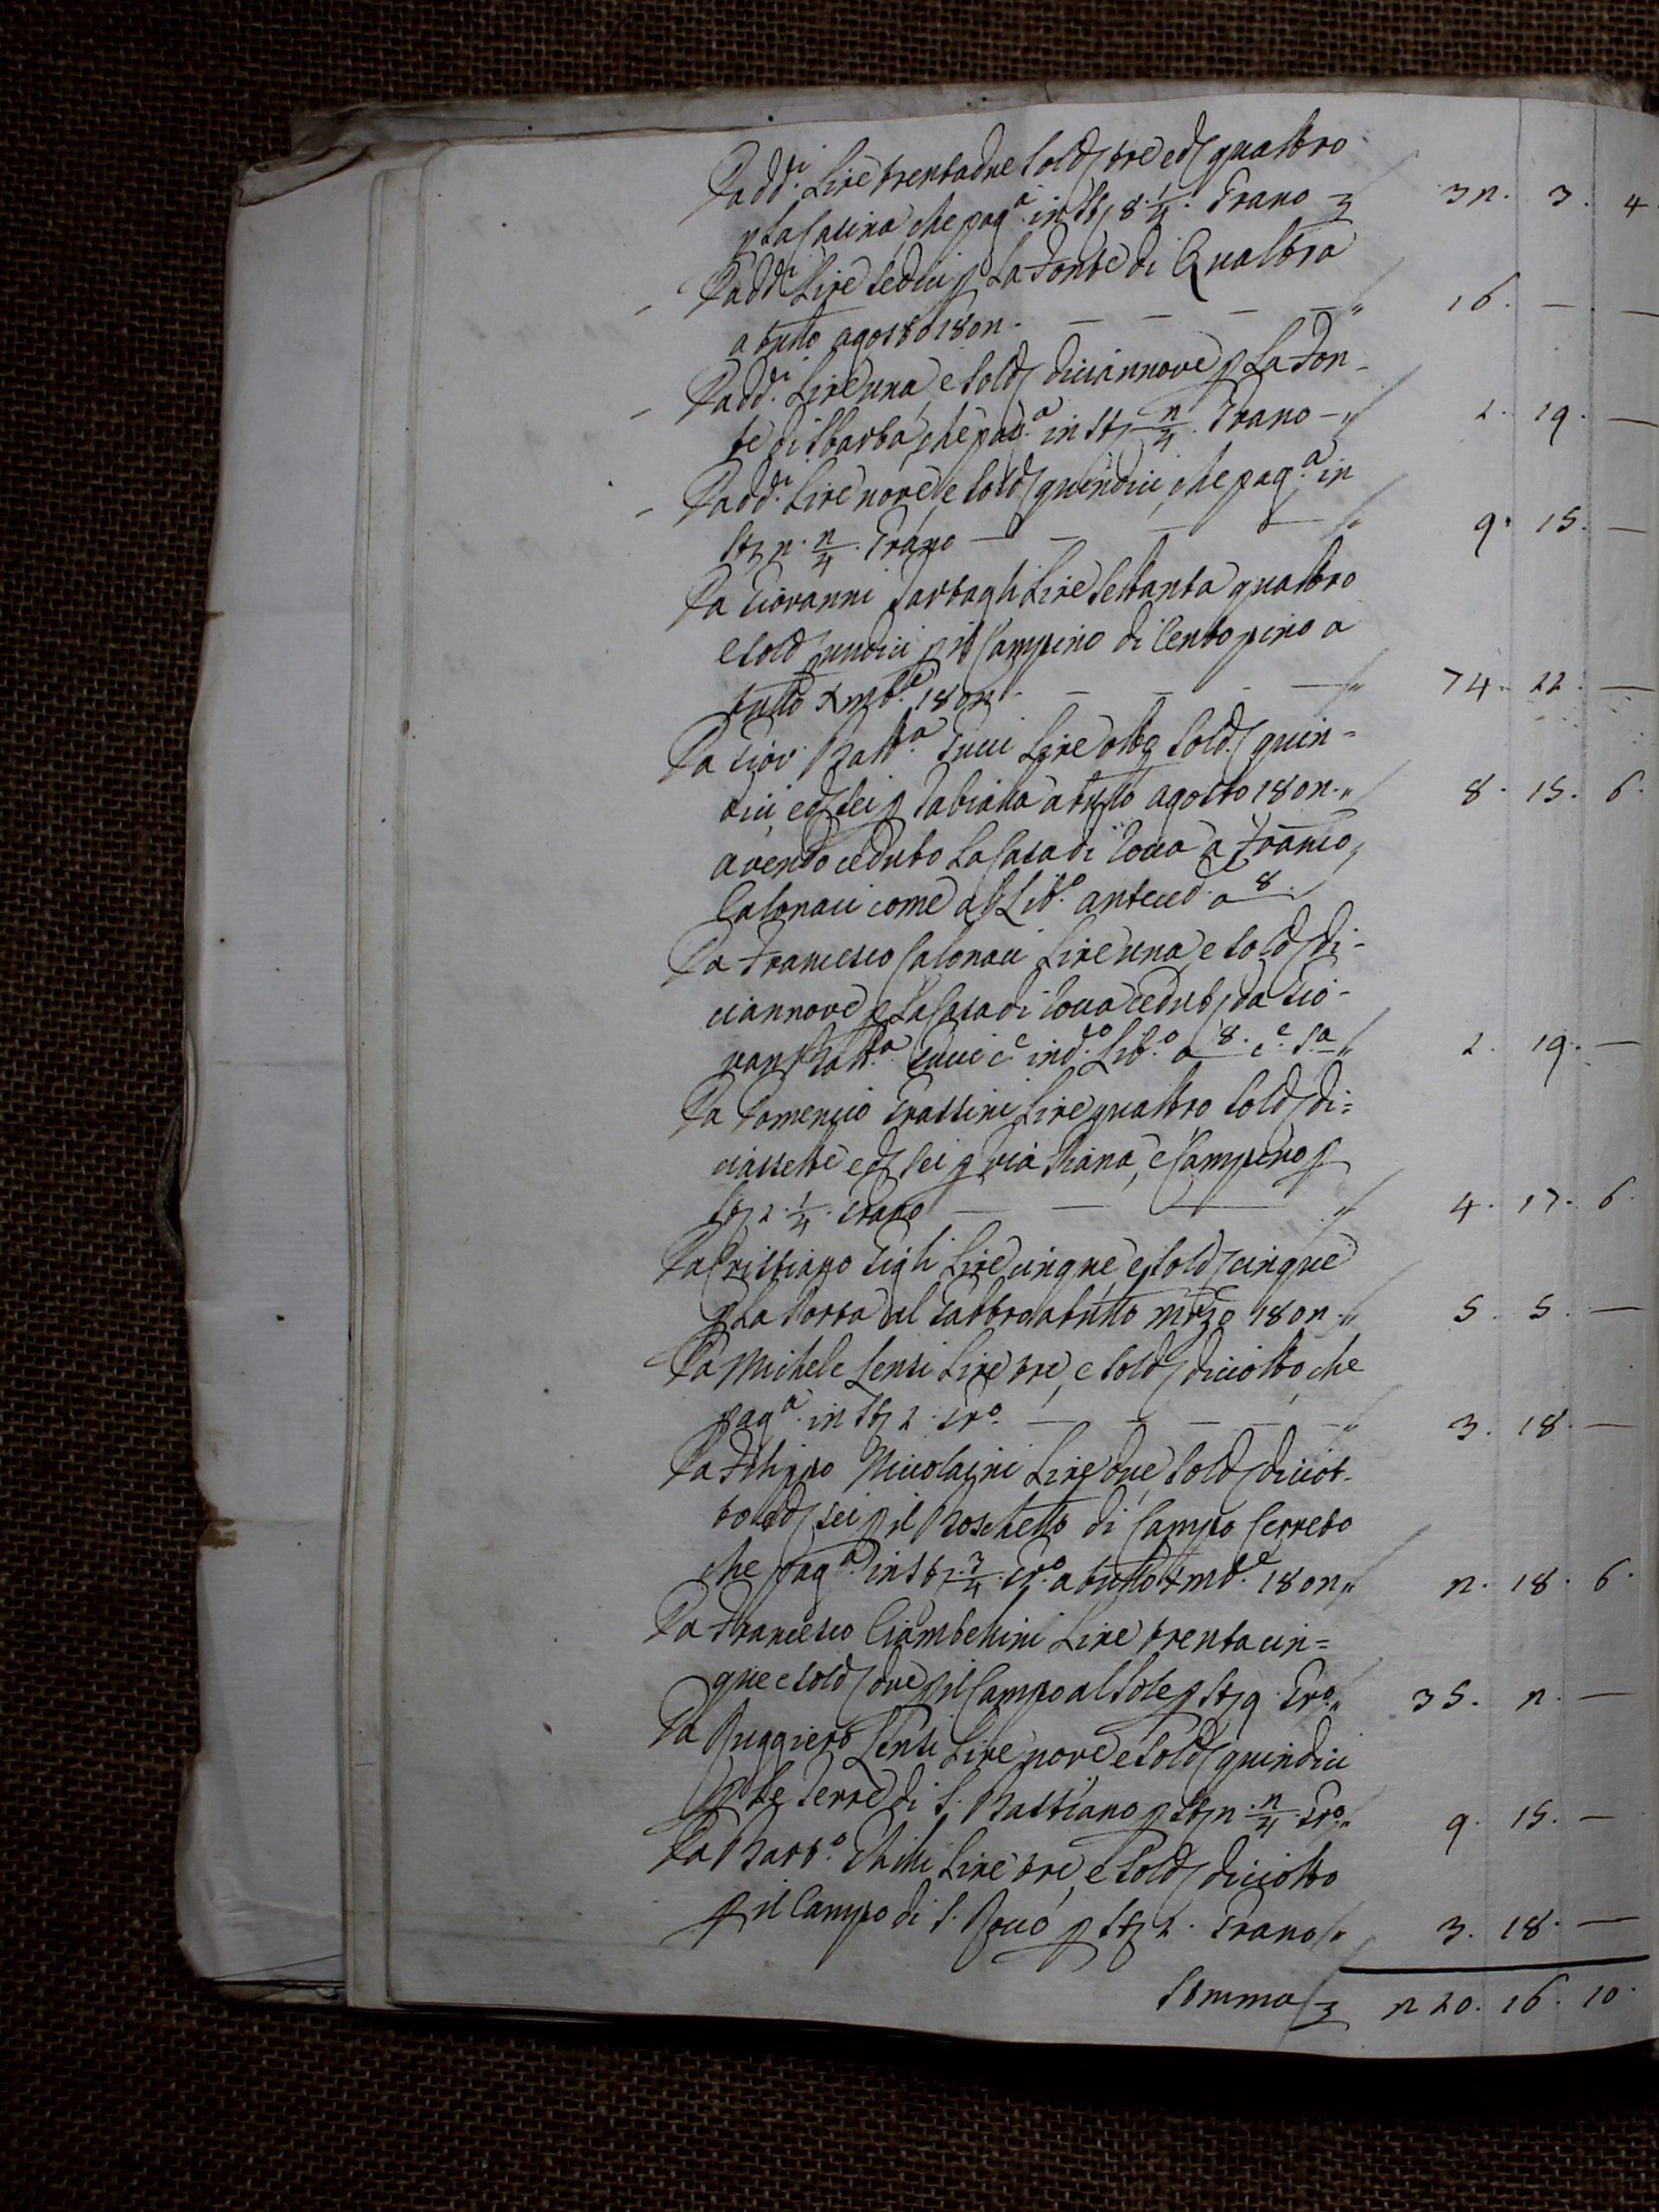 Dadd.i Lire trentadue sold tre e d quattro
p La Casina che pag.a in St 8. 1/4. Grano 32. 3. 4
Dadd.i Lire sedici p La Fonte di Qualtra
a tutto agosto 1802. — — — — " 16. — —
Dadd.i Lire una e sold diciannove p La Fon-
te di Sbarba che pag.a in St 2/4. Grano — " 1. 19. —
Dadd.i Lire nove e sold quindici che pag.a in
St 2. 2/4. Grano — — — — " 9. 15. —
Da Giovanni Lire Settanta quattro
e sold undici p il Campino di Centopino a
tutto Xmb.e 1802. — — — — " 74. 11. —
Da Giov. Batt.a Tucci Lire otto sold quin=
dici, e d sei p a tutto agosto 1802. " 8. 15. 6.
avendo ceduto La Casa di Cocca a Franco
Calonaci come al Lib.o anteced. a 8.
Da Francesco Calonaci Lire una, e sold di-
ciannove p La Casa di Cocca ceduta da Gio-
van Batt.a Tucci c.e in d.o Lib.o a 8. c.e S.a " 1. 19. —
Da Domenico Grassini Lire quattro sold di=
ciassette e d sei p via Piana, e Campino p
St 1. 1/4. Grano — — — " 4. 17. 6.
Da Cristiano Gigli Lire cinque e sold cinque
p La Porta al a tutto mrzo 1802. " 5. 5. —
Da Michele Sensi Lire tre, e sold diciotto, che
pag.a in St 1. Gr.o — — — — — " 3. 18. —
Da Filippo Niccolaini Lire due, sold diciot-
to e d sei p il Boschetto di Campo Cerreto
che pag.a in St. 3/4. Gr.o a tutto Xmb.e 1802 " 2. 18. 6.
Da Francesco Ciambellini Lire trentacin=
que e sold due p il Campo al Sole p St 9. Gr.o " 35. 2. —
Da Ruggiero Sensi Lire nove e sold quindici
p Le Terre di S. Bastiano p St 2. 2/4. Gr.o " 9. 15. —
Da Bart.o Lire tre, e sold diciotto
p il Campo di S. Rocco p St 1. Grano " 3. 18. —
Somma 210. 16. 10.